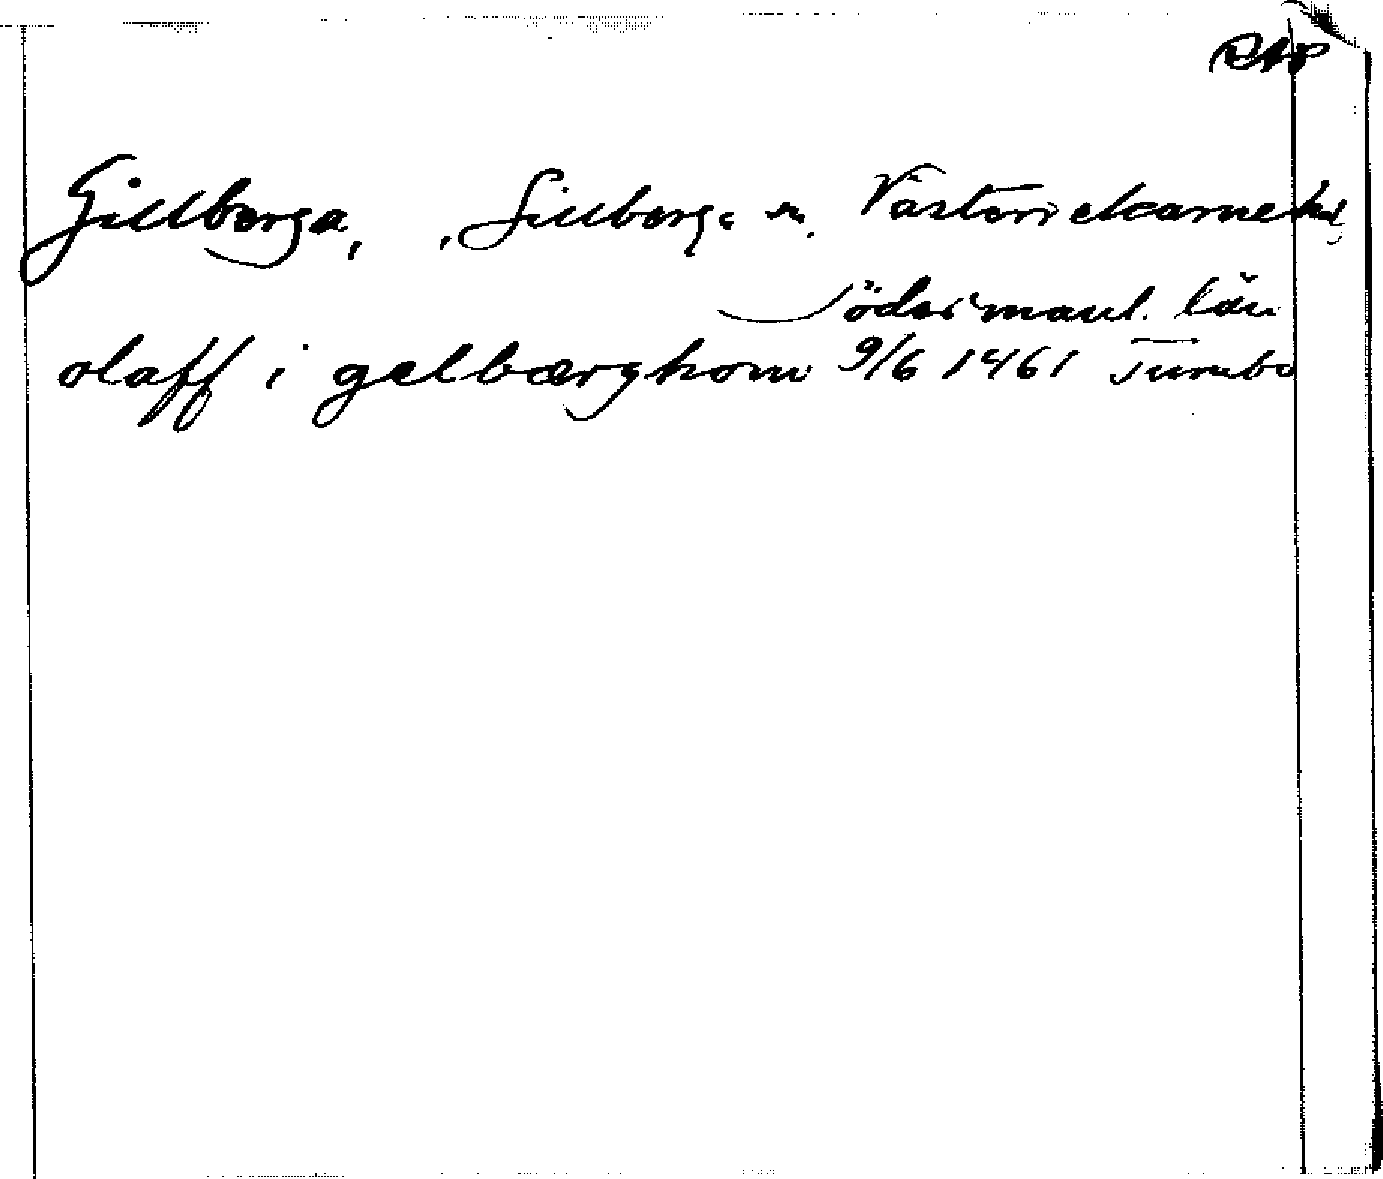 RAP
Gillberga, , Gillberga sn. Västerrekarne hd,
Söderman l. län
olaff i gelbærghom 9/6 1461 Tumbo